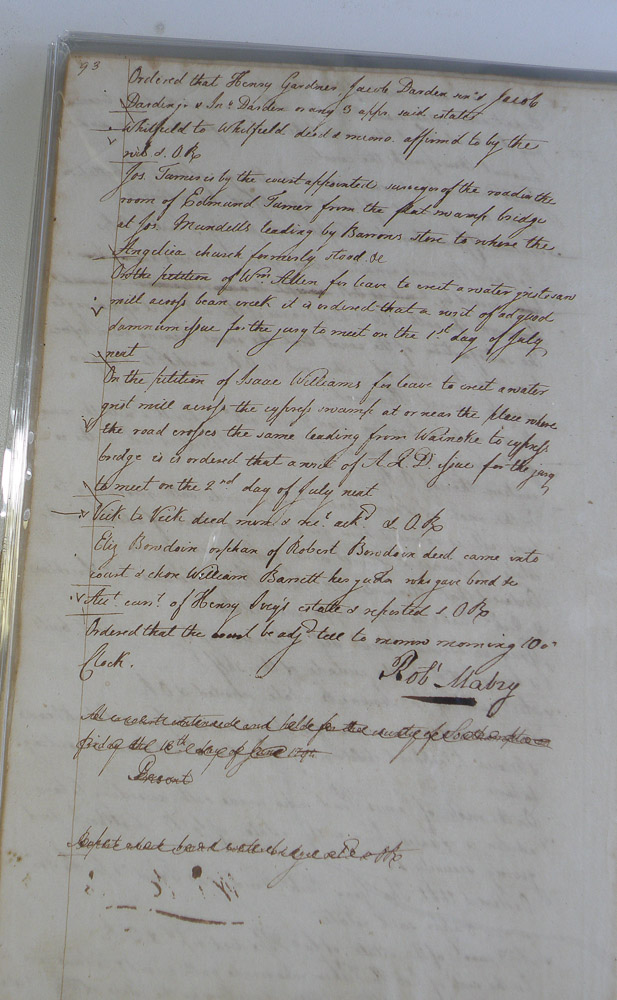 93
Ordered that Henry Gardner, Jacob Darden senr & Jacob
Darden jr & Jno Darden or any 3 appr. said estate
Whitfield to Whitfield deed & memo. affirmd to by the
wits. & O.R.
Jos. Turner is by the court appointed surveyor of the road in the
room of Edmund Turner from the flat swamp bridge
at Jos. Mundells leading by Barrons store to where the
Angelica church formerly stood &c
On the petition of Wm Allen for leave to erect a water grist & saw
mill across bean creek it is ordered that a writ of ad quod
damnum issue for the jury to meet on the 1st day of July
next
On the petition of Isaac Williams for leave to erect a water
grist mill across the cypress swamp at or near the place where
the road crosses the same leading from Wainoke to cypress
bridge is is ordered that a writ of A.Q.D. issue for the jury
to meet on the 2nd day of July next
Vick to Vick deed mem & rect ackd & O.R
Eliz Bowdoin orphan of Robert Bowdoin decd came into
court & chose William Barrett her gudn who gave bond &c
Acct currt of Henry Ivey's estate & reported & O.R
Ordered that the court be adjd till to morrow morning 10 o
Clock.
Robt Mabry
At a court continued and held for the county of Southampton
friday the 18th day of June
Present